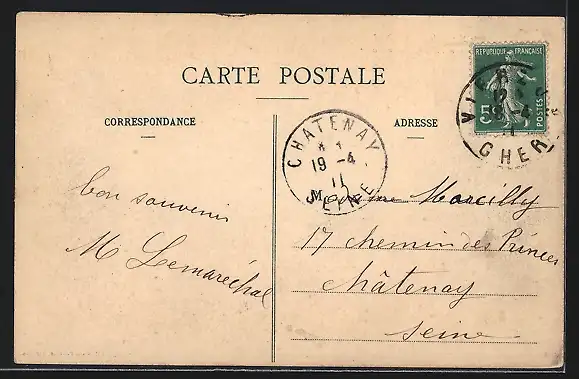 REPUBLIQUE FRANÇAISE
5c
POSTES
VIERZON
CHER
CARTE POSTALE
CORRESPONDANCE
ADRESSE
CHATENAY
19 -4
11
SEINE
bon souvenir
M Lemaréchal
Madame Marcilly
17 chemin des Princes
Châtenay
Seine